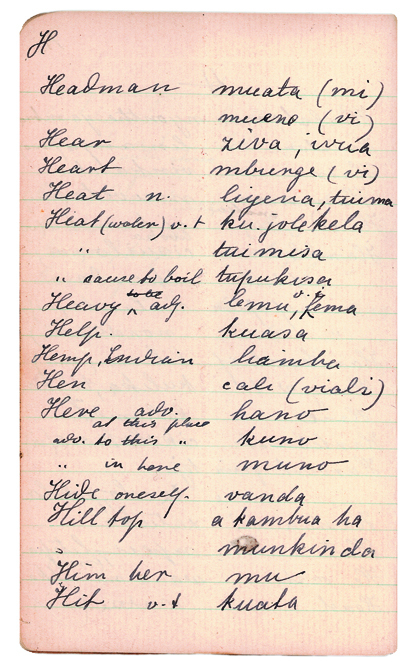 H
Headman muata (mi)
muene (vi)
Hear ziva, ivua
Heart mbunge (vi)
Heat n. ligenia, tuima
Heat (water) v.t ku.jolekela
" tuimisa
" cause to boil tupukisa
Heavy to be adj. lemu, v. lema
Help. kuasa
Hemp, Indian liamba
Hen cali (viali)
Here adv. hano
at this place
adv. to this " kuno
" in here muno
Hide oneself. vanda
Hill top a kambua ha
" munkinda
Him her mu
Hit v.t kuata